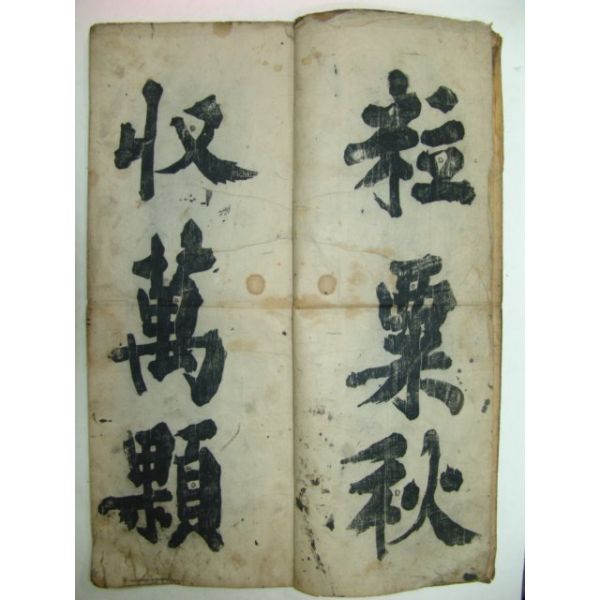 粒粟秋
収萬顆